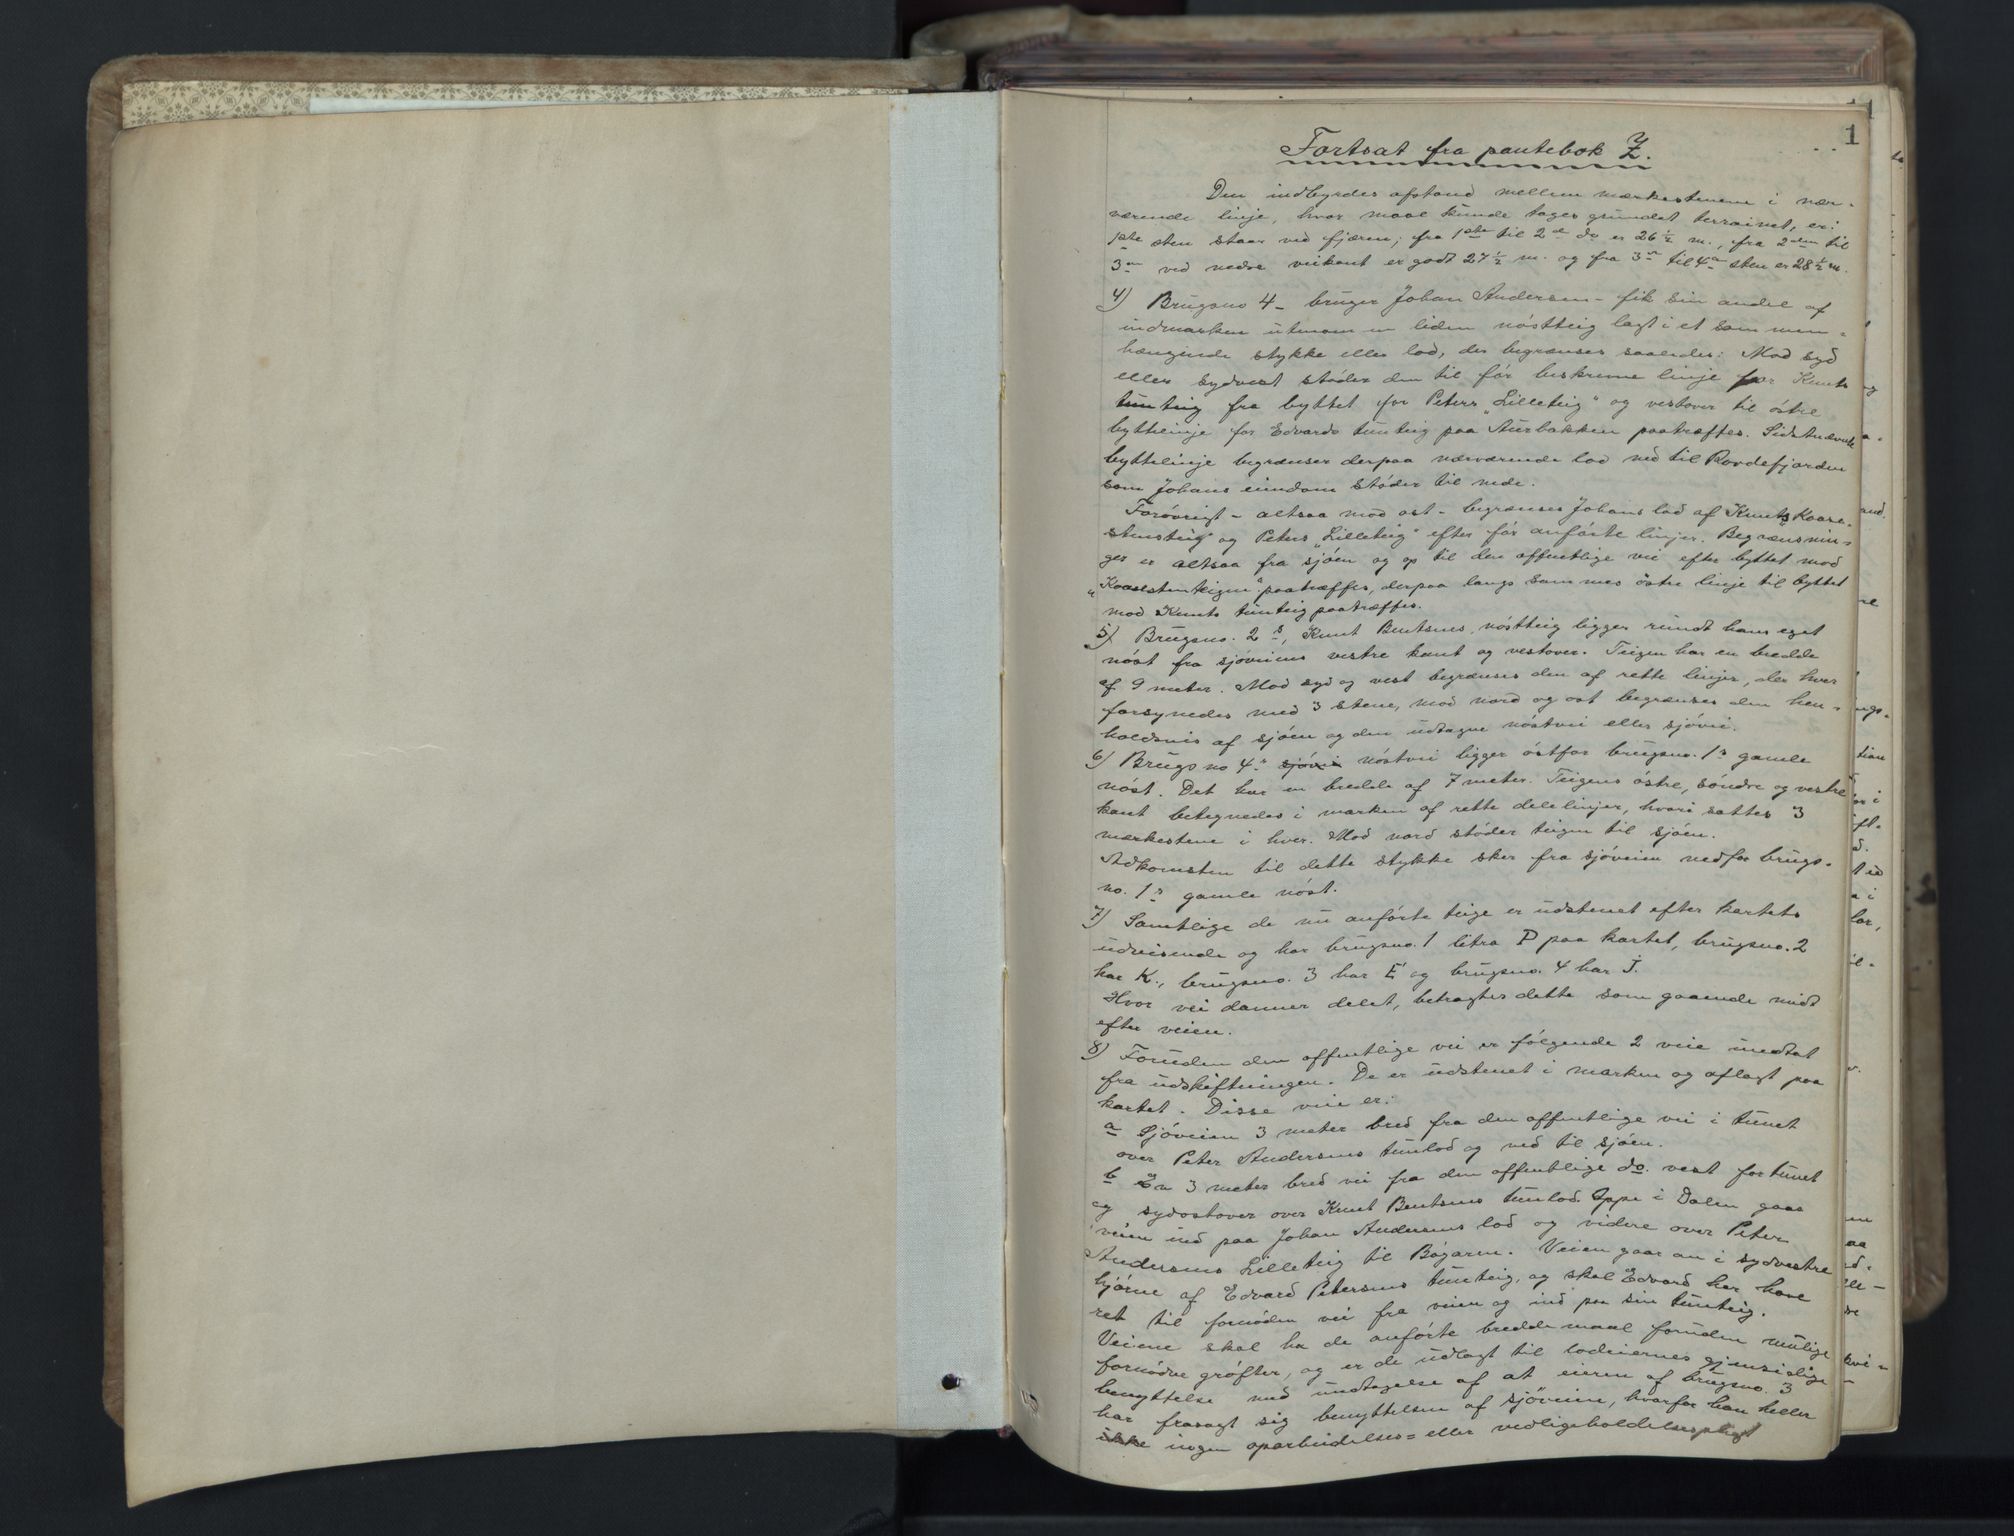 1
Fortsat fra pantebok Z.
Den indbyrdes afstand mellem mærkestenene i nær-
værende linje, hvor maal kunde tages grundet terrainet, er:
1ste sten staar ved fjæren; fra 1ste til 2d do er 26½ m., fra 2den til
3die ved nedre veikant er godt 27½ m. og fra 3die til 4de sten er 28½ m.
4) Brugsno 4 – bruger Johan Andersen – fik sin andel af
indmarken utenom en liden nöstteig lagt i et sammen-
hængende stykke eller lod, der begrænses saaledes: Mod syd
eller sydvest stöder den til för beskrevne linje for Knuts
tunteig fra byttet for Peters „Lilleteig" og vestover til östre
byttelinje for Edvards tunteig paa Aurbakken paatræffes. Sidstnævnte
byttelinje begrænser derpaa nærværende lod ned til Rovdefjorden
som Johans eiendom stöder til nede.
Forövrigt – altsaa mod ost – begrænses Johans lod af Knuts „Kaase-
stensteig" og Peters „Lilleteig" efter för anförte linjer. Begrænsnin-
gen er altsaa fra sjöen og op til den offentlige vei efter byttet mod
„Kaasestensteigen" paatræffes, derpaa langs sammes östre linje til byttet
mod Knuts tunteig paatræffes.
5) Brugsno. 2s, Knut Bentsens, nöstteig ligger rundt hans eget
nöst fra sjöveiens vestre kant og vestover. Teigen har en bredde
af 9 meter. Mod syd og vest begrænses den af rette linjer, der hver
forsynedes med 3 stene, mod nord og ost begrænses den hen-
holdsvis af sjöen og den udtagne nöstvei eller sjövei.
6) Brugsno 4s sjövei nöstvei ligger östfor brugsno. 1s gamle
nöst. Det har en bredde af 7 meter. Teigens östre, söndre og vestre
kant betegnedes i marken af rette delelinjer, hvori sattes 3
merkestene i hver. Mod nord stöder teigen til sjöen.
Adkomsten til dette stykke sker fra sjöveien nedfor brugs-
no. 1s gamle nöst.
7) Samtlige de nu anförte teige er udstenet efter kartets
udvisende og har brugsno. 1 litra P paa kartet, brugsno. 2
har K., brugsno. 3 har E og brugsno. 4 har J.
Hvor vei danner delet, betragtes dette som gaaende midt
efter veien.
8) Foruden den offentlige vei er fölgende 2 veie undtat
fra udskiftningen. De er udstenet i marken og aflagt paa
kartet. Disse veie er:
a Sjöveien 3 meter bred fra den offentlige vei i tunet
over Peter Andersens tunlod og ned til sjöen.
b En 3 meter bred vei fra den offentlige do. vest for tunet
og sydostover over Knut Bentsens tunlod. Oppe i Dalen gaar
veien ind paa Johan Andersens lod og videre over Peter
Andersens Lilleteig til Bögaren. Veien gaar an i sydvestre
hjörne af Edvard Petersens tunteig, og skal Edvard her have
ret til fornöden vei fra veien og ind paa sin tunteig.
Veiene skal ha de anförte breddemaal foruden mulige
fornödne gröfter, og er de udlagt til lodeiernes gjensidige
benyttelse med undtagelse af at eieren af brugsno. 3
har frasagt sig benyttelsen af sjöveien, hvorfor han heller
ikke nogen oparbeidelses- eller vedligeholdelsespligt